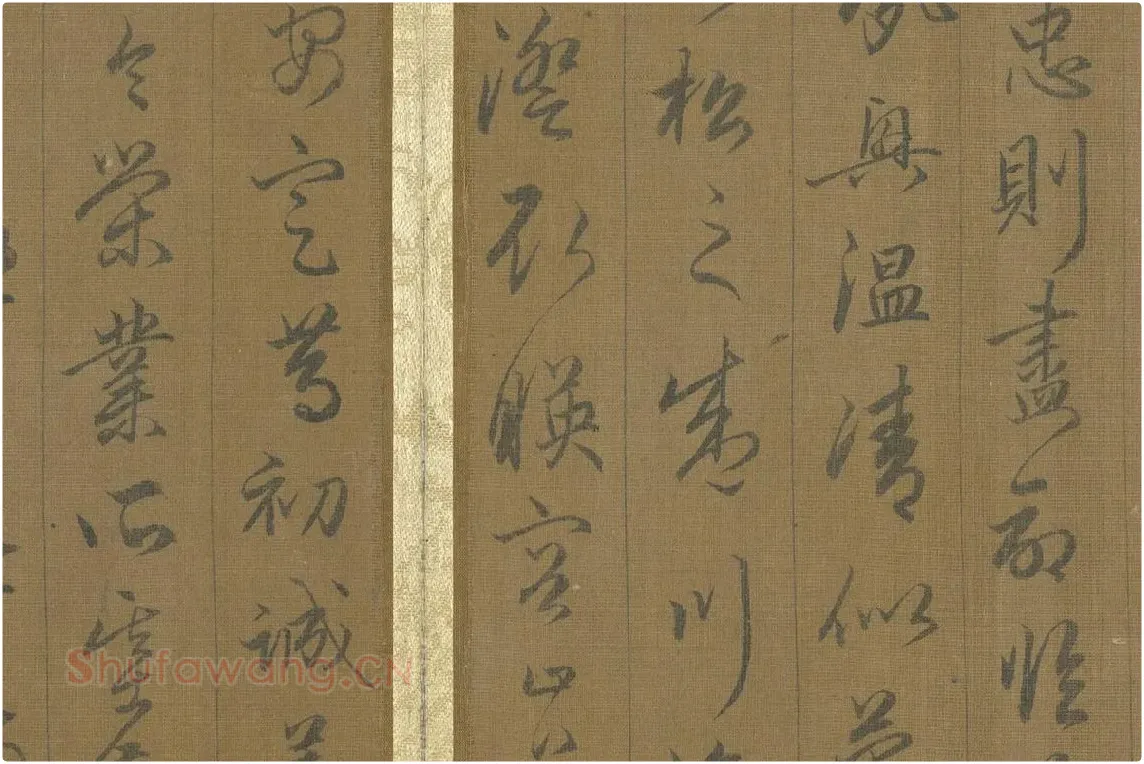 忠則盡命臨
夙興温清似
松之盛川
澄取暎容止
安定篤初誠
令榮業所基
Shufawang.CN